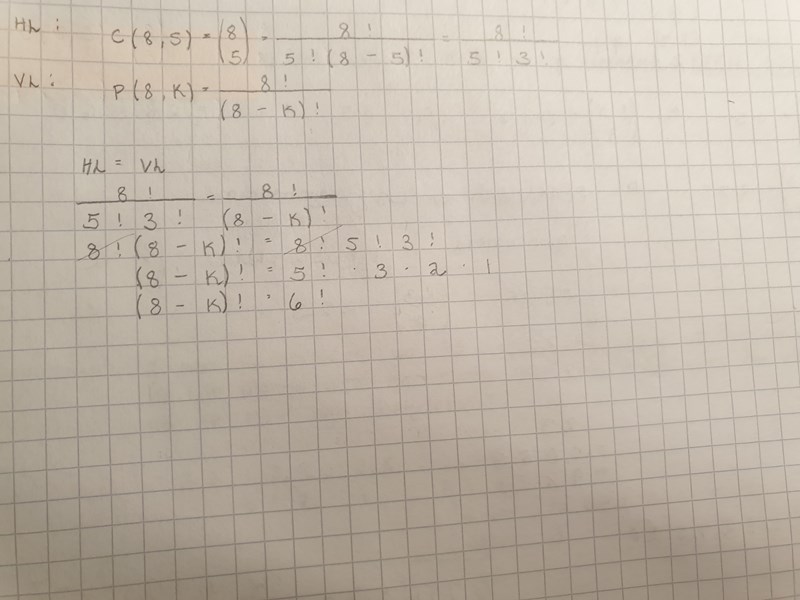 HL: C(8,5) = (8 5) = 8! / 5!(8-5)! = 8! / 5!3!
VL: P(8,K) = 8! / (8-K)!
HL = VL
8! / 5!3! = 8! / (8-K)!
8!(8-K)! = 8!5!3!
(8-K)! = 5!·3·2·1
(8-K)! = 6!